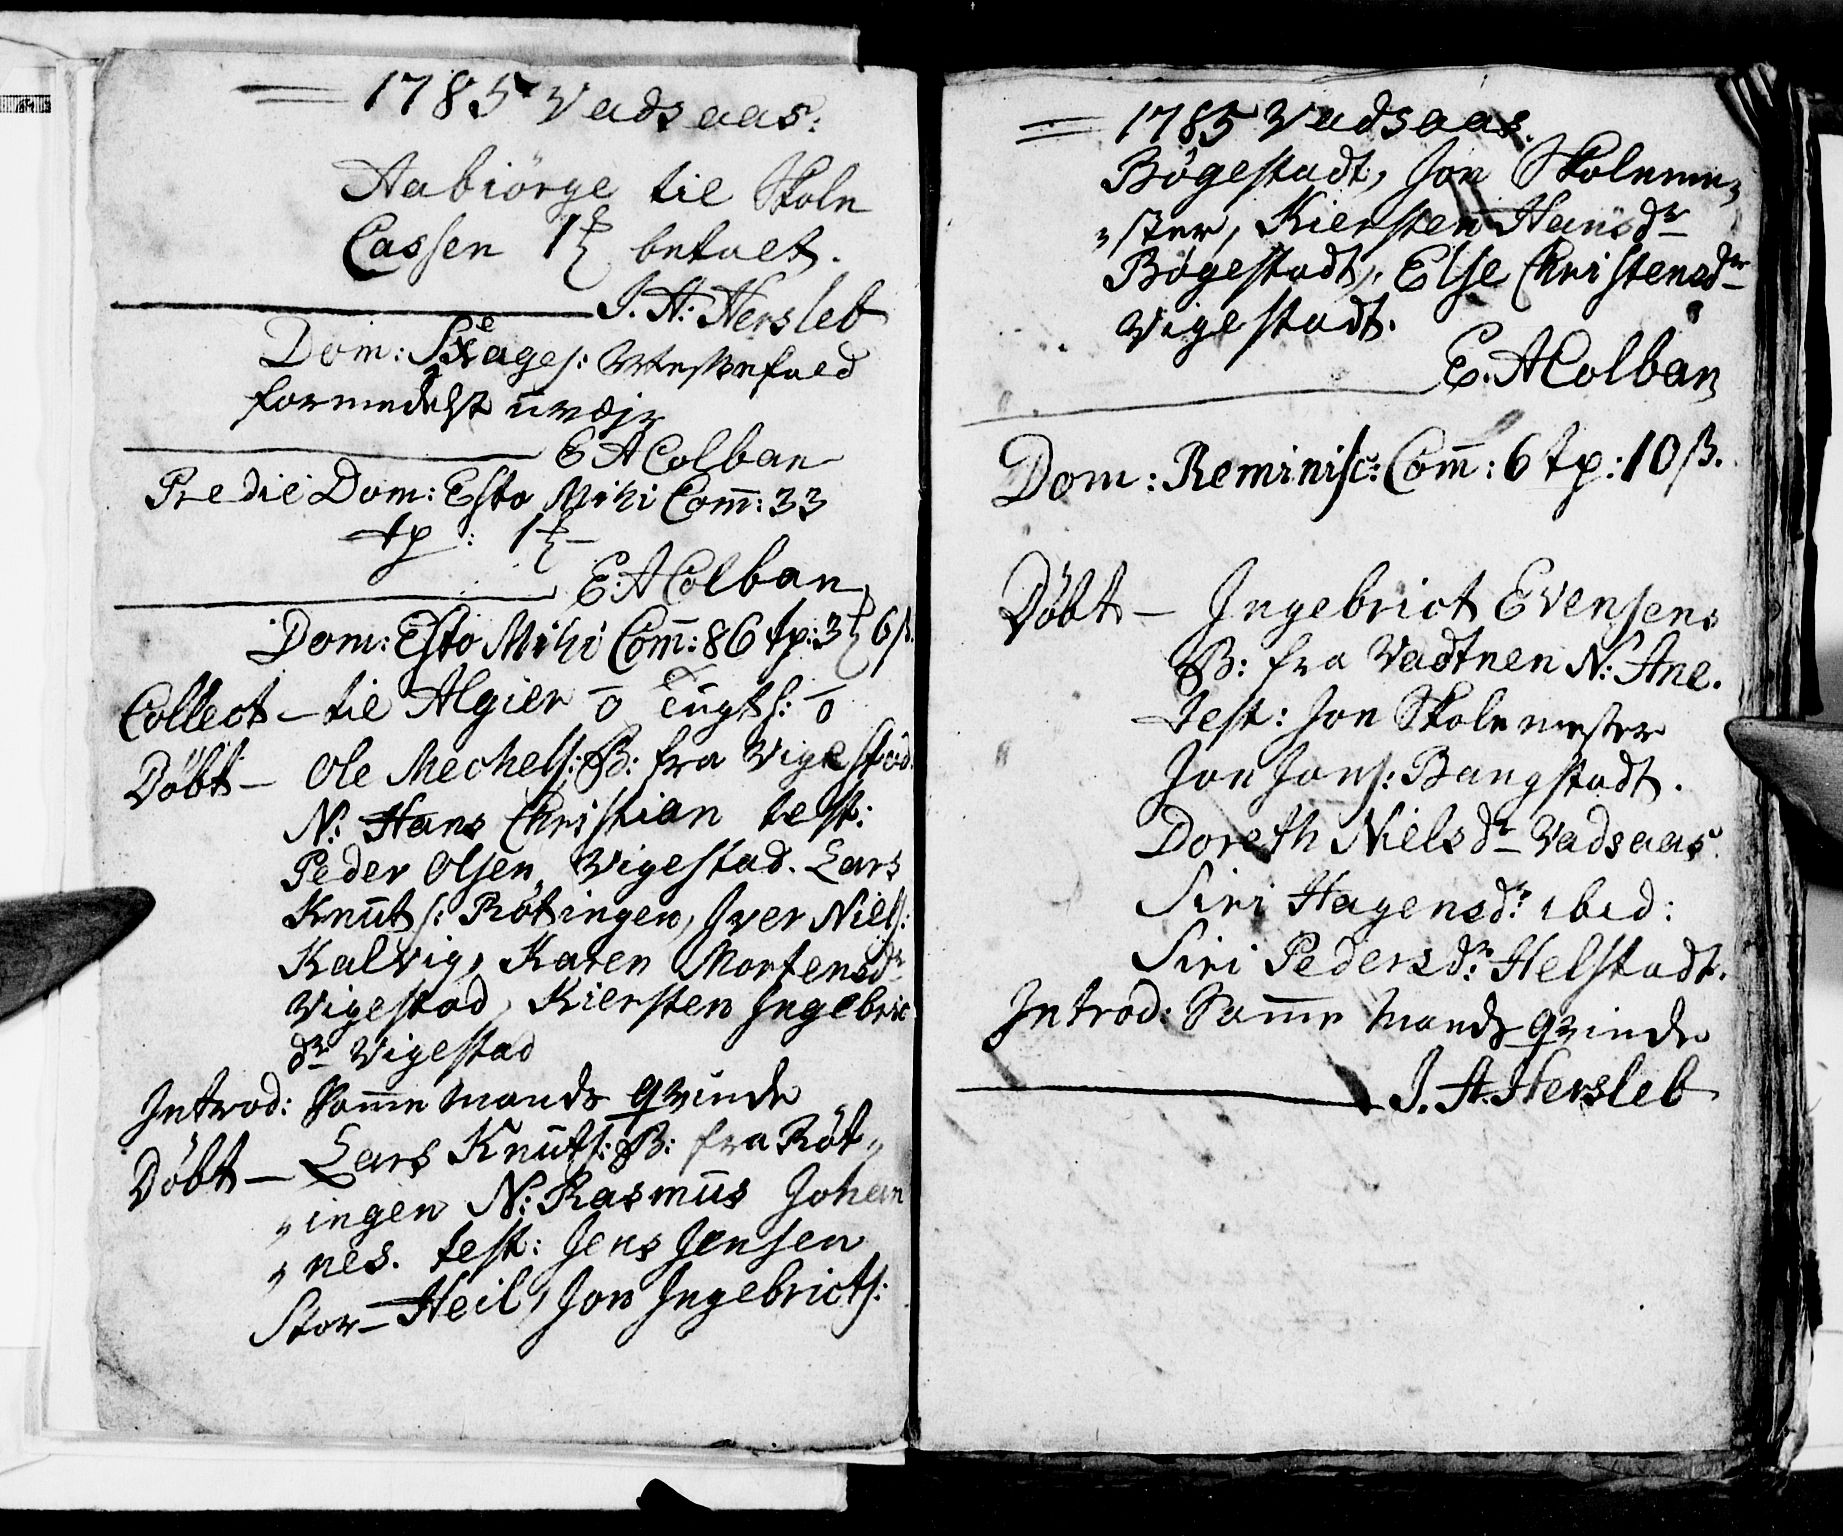 1785 Vadsaas:
Aabiörge til Skole
Cassen 1 betalt.
J. H: Hersleb
Dom: Sexages: Messefald
formedelst uveir
E A Colban
Predie Dom: Esto Mihi Com̄: 33
tp: 1
E: A Colban
Dom: Esto Mihi Com̄: 86 tp: 3 6 ß.
Collect – til Algier o Tugth: o
Döbt – Ole Mechels: B: fra Vigestad.
N: Hans Christian test:
Peder Olsen, Vigestad. Lars
Knuts: Rötingen, Iver Niels:
Kalvig, Karen Mortensdr
Vigestad, Kiersten Ingebric
dr Vigestad
Introd: Samme Mands Qvinde
Döbt – Lars Knuts: B: fra Röt„
„ingen N: Rasmus Johan
„nes. test: Jens Jensen
Stor–Heil, Jon Ingebricts:
1785 Vadsaas.
Bögestadt, Jon Skoleme„
„ster, Kiersten Hansdr
Bögestadt, Else Christensdr
Vigestadt.
E. A Colban
Dom: Reminisc: Com̄: 6 tp: 10 ß.
Döbt – Ingebrict Evensens
B: fra Vadtnen N: Ane.
Test: Jon Skolemester
Jon Jons: Bangstadt.
Doreth Nielsdr Vadsaas
Siri Hagensdr: ibid:
Siri Pedersdr: Helstadt.
Introd: Samme Mands Qvinde
J. H. Hersleb